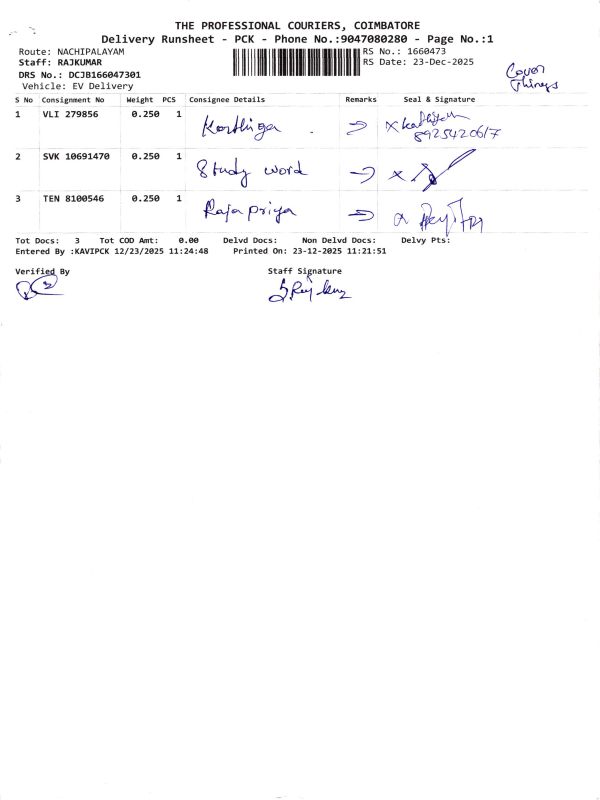 THE PROFESSIONAL COURIERS, COIMBATORE
Delivery Runsheet - PCK - Phone No.:9047080280 - Page No.:1
Route: NACHIPALAYAM RS No.: 1660473
Staff: RAJKUMAR RS Date: 23-Dec-2025
DRS No.: DCJB166047301
Vehicle: EV Delivery
Cover
Things
S No Consignment No Weight PCS Consignee Details Remarks Seal & Signature
1 VLI 279856 0.250 1 Karthiga
8925420617
2 SVK 10691470 0.250 1 Study word
3 TEN 8100546 0.250 1 Raja priya
Tot Docs: 3 Tot COD Amt: 0.00 Delvd Docs: Non Delvd Docs: Delvy Pts:
Entered By :KAVIPCK 12/23/2025 11:24:48 Printed On: 23-12-2025 11:21:51
Verified By Staff Signature